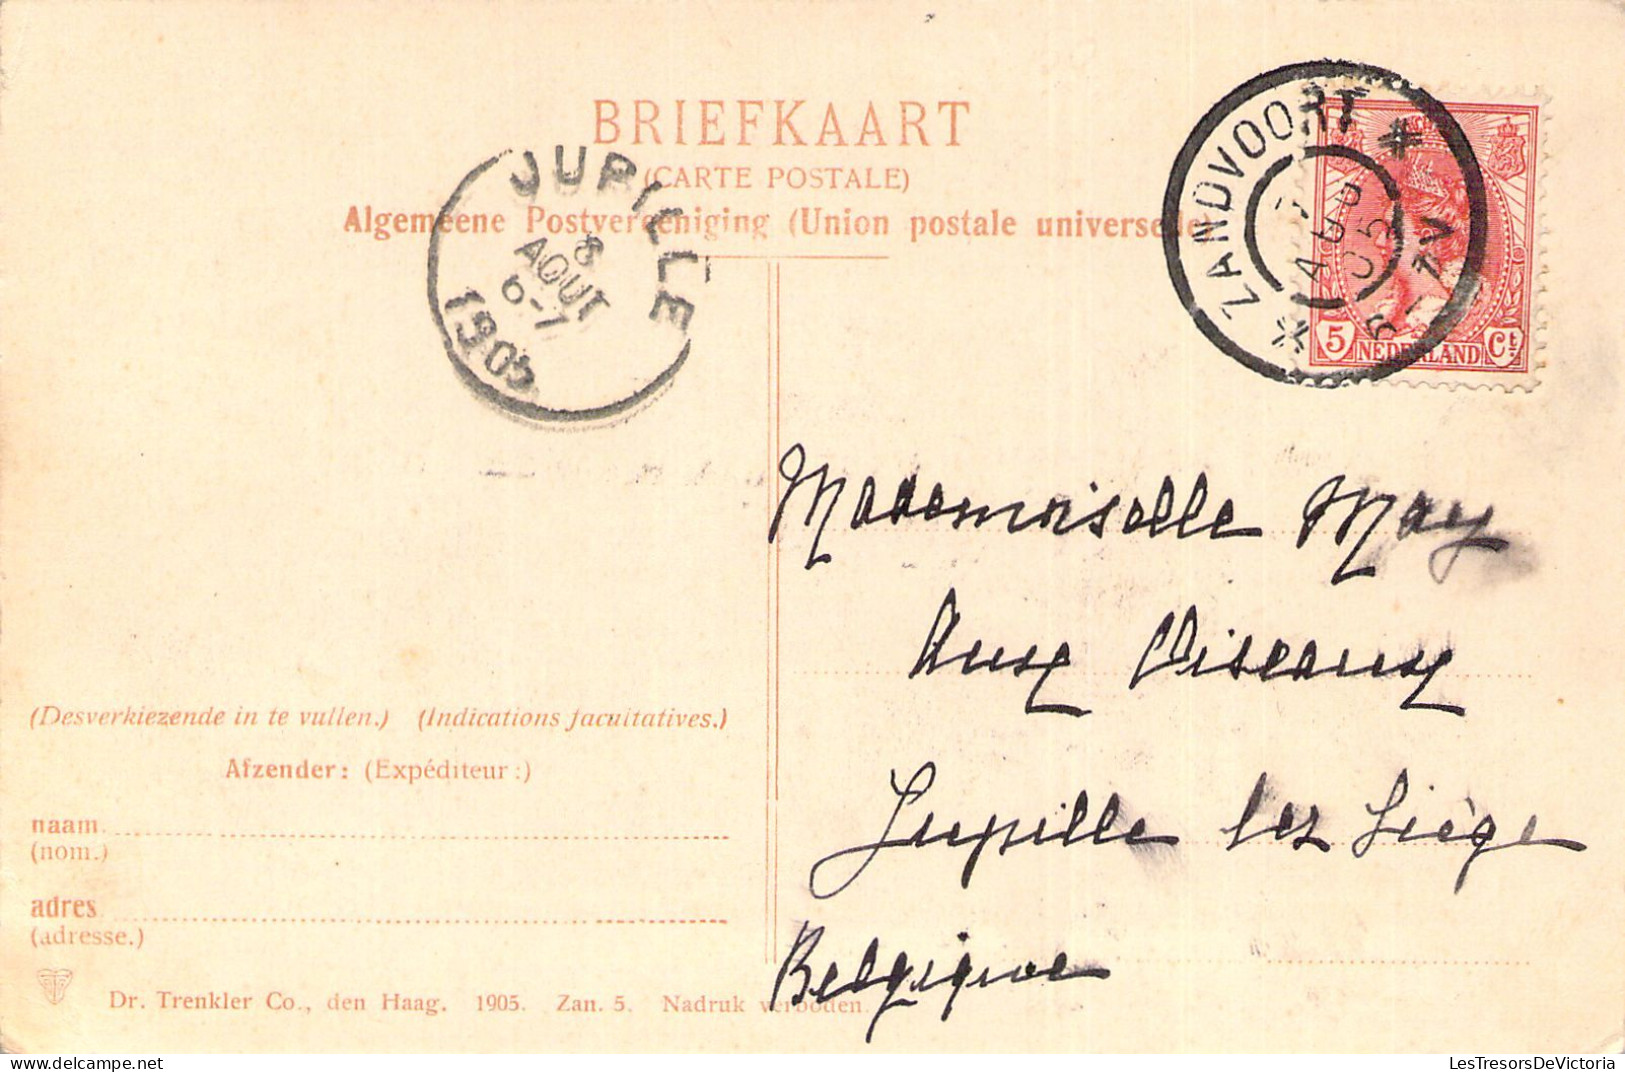 BRIEFKAART
(CARTE POSTALE)
Algemeene Postvereeniging (Union postale universelle)
JUPILLE
8
AOUT
6-7
1905
ZANDVOORT
5 NEDERLAND Ct.
Mademoiselle May
Aux Oiseaux
Jupille lez Liège
Belgique
(Desverkiezende in te vullen.) (Indications facultatives.)
Afzender: (Expéditeur:)
naam
(nom.)
adres
(adresse.)
Dr. Trenkler Co., den Haag. 1905. Zan. 5. Nadruk verboden.
LesTresorsDeVictoria